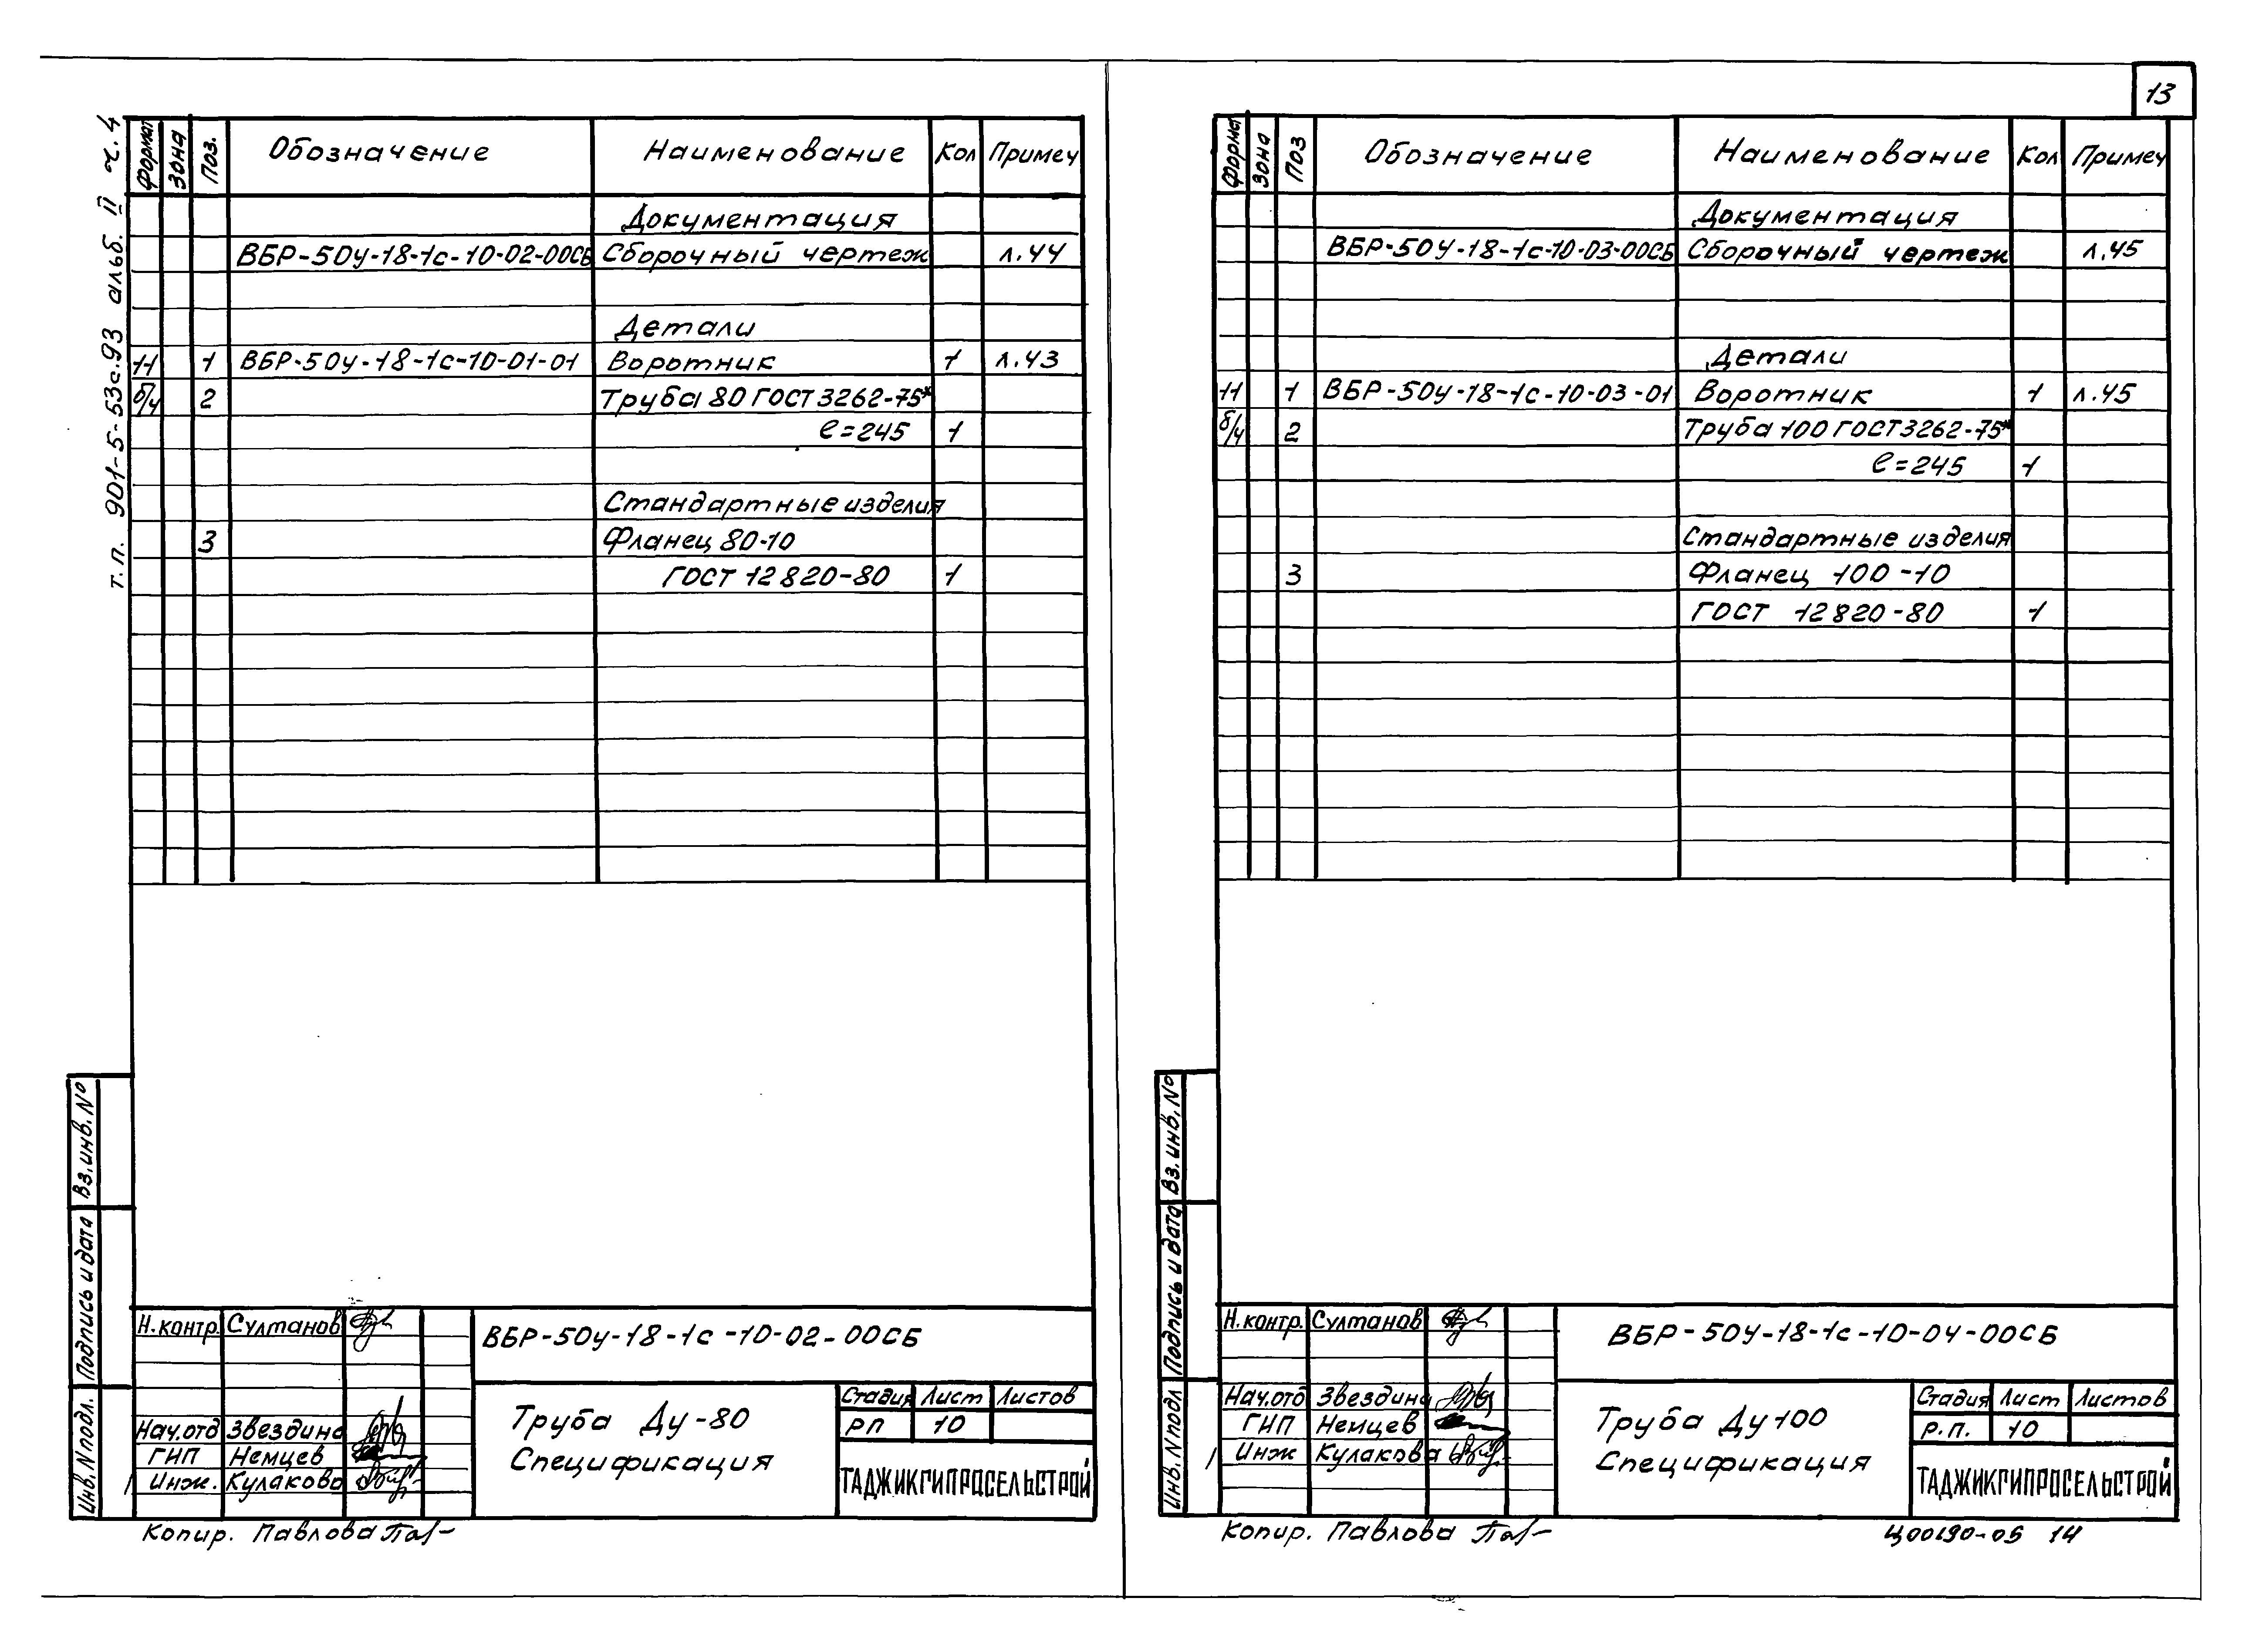 13
т.п. 901-5-53с.93 альб. II ч.4
Формат Зона Поз. Обозначение Наименование Кол Примеч
Документация
ВБР-50у-18-1с-10-02-00СБ Сборочный чертеж л.44
Детали
11 1 ВБР-50у-18-1с-10-01-01 Воротник 1 л.43
б/ч 2 Труба 80 ГОСТ 3262-75*
ℓ=245 1
Стандартные изделия
3 Фланец 80-10
ГОСТ 12820-80 1
Вз.инв.№
Подпись и дата
Инв.№подл.
Н.контр. Султанов
Нач.отд Звездина
ГИП Немцев
Инж. Кулакова
ВБР-50у-18-1с-10-02-00СБ
Труба Ду-80
Спецификация
Стадия Лист Листов
РП 10
ТАДЖИКГИПРОСЕЛЬСТРОЙ
Копир. Павлова
Формат Зона Поз Обозначение Наименование Кол Примеч
Документация
ВБР-50у-18-1с-10-03-00СБ Сборочный чертеж л.45
Детали
11 1 ВБР-50у-18-1с-10-03-01 Воротник 1 л.45
б/ч 2 Труба 100 ГОСТ 3262-75*
ℓ=245 1
Стандартные изделия
3 Фланец 100-10
ГОСТ 12820-80 1
Вз.инв.№
Подпись и дата
Инв.№подл
Н.контр. Султанов
Нач.отд Звездина
ГИП Немцев
Инж Кулакова
ВБР-50у-18-1с-10-04-00СБ
Труба Ду 100
Спецификация
Стадия Лист Листов
Р.П. 10
ТАДЖИКГИПРОСЕЛЬСТРОЙ
Копир. Павлова
Ц00190-05 14